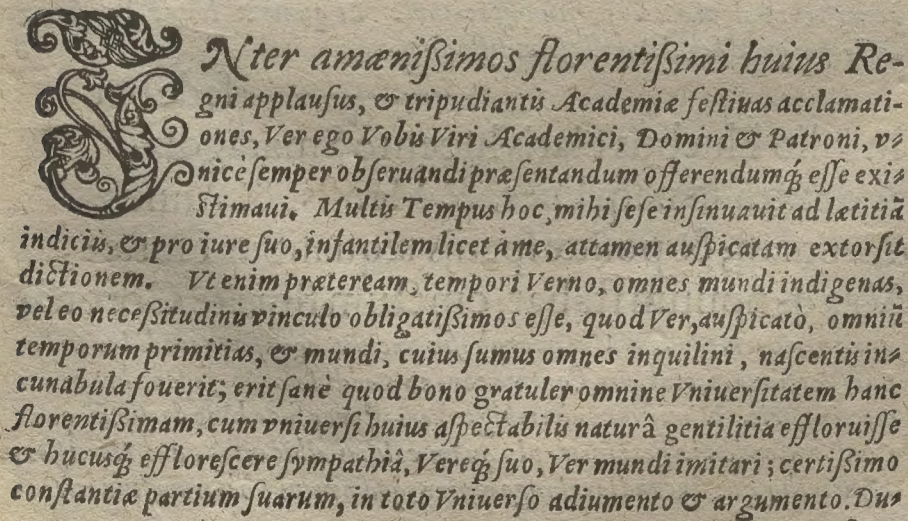 INter amæniſſimos florentiſſimi huius Re-
gni applauſus, & tripudiantis Academiæ feſtiuas acclamati-
ones, Ver ego Vobis Viri Academici, Domini & Patroni, v-
nicè ſemper obſeruandi præſentandum offerendumq́; eſſe exi-
ſtimaui. Multis Tempus hoc, mihi ſeſe inſinuauit ad lætitiã
indiciis, & pro iure ſuo, infantilem licet àme, attamen auſpicatam extorſit
dictionem. Vt enim præteream, tempori Verno, omnes mundi indigenas,
vel eo neceſſitudinis vinculo obligatiſſimos eſſe, quod Ver, auſpicatò, omniũ
temporum primitias, & mundi, cuius ſumus omnes inquilini, naſcentis in-
cunabula fouerit; erit ſanè quod bono gratuler omnine Vniuerſitatem hanc
florentiſſimam, cum vniuerſi huius aſpectabilis naturâ gentilitia effloruiſſe
& hucusq́; effloreſcere ſympathiâ, Vereq́; ſuo, Ver mundi imitari; certiſſimo
conſtantiæ partium ſuarum, in toto Vniuerſo adiumento & argumento. Du-